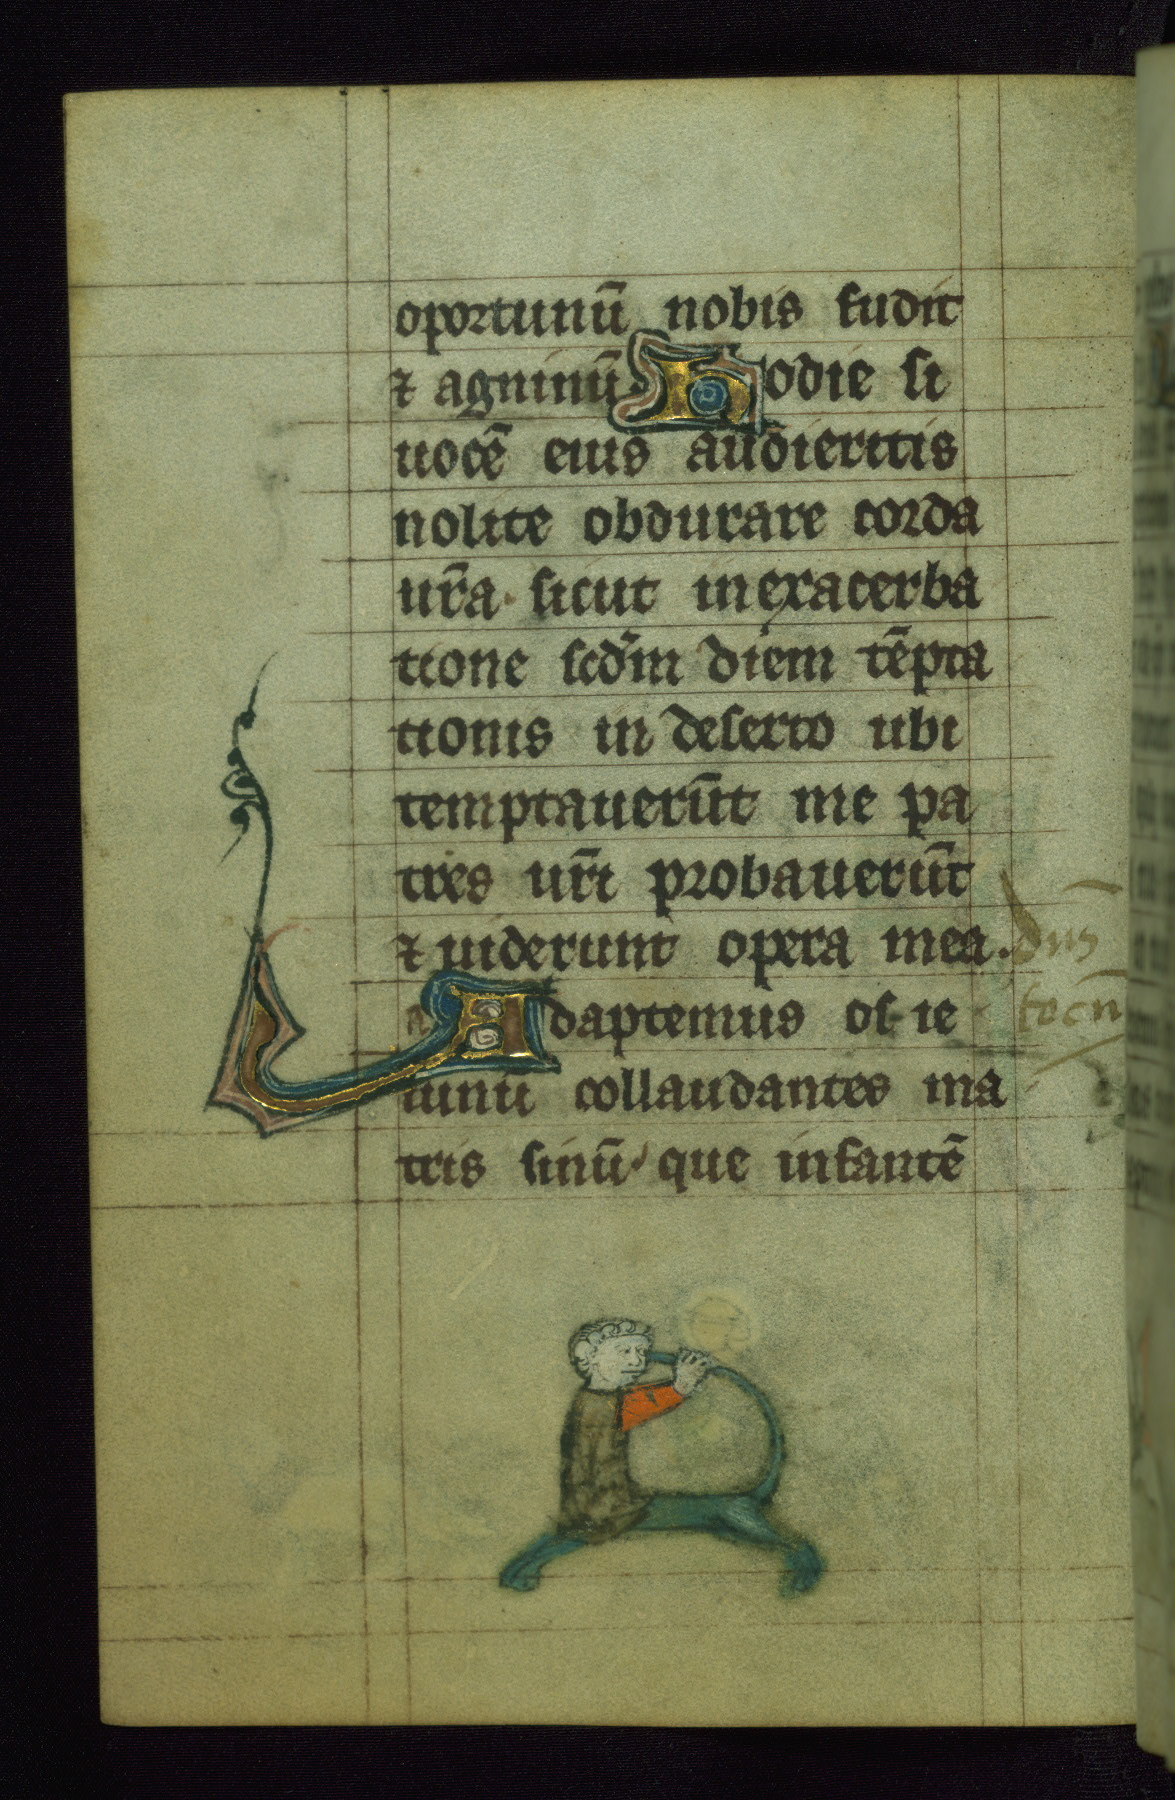 oportunū nobis fudit
⁊ agninū Hodie si
uocē eius audieritis
nolite obdurare corda
ur̄a· sicut in exacerba
tione scd̄m diem tēpta
tionis in deserto ubi
temptauerūt me pa
tres ur̄i probauerūt
⁊ uiderunt opera mea.
Adaptemus os ie
iunii collaudantes ma
tris sinū que infantē